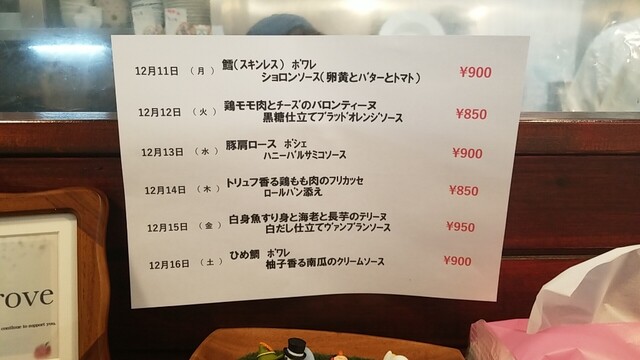 12月11日 （月） 鱈（スキンレス） ﾎﾟﾜﾚ
ショロンソース（卵黄とバターとトマト） ¥900
12月12日 （火） 鶏モモ肉とチーズのバロンティーヌ
黒糖仕立てブラッドオレンジソース ¥850
12月13日 （水） 豚肩ロース ﾎﾟｼｪ
ハニーバルサミコソース ¥900
12月14日 （木） トリュフ香る鶏もも肉のフリカッセ
ロールパン添え ¥850
12月15日 （金） 白身魚すり身と海老と長芋のテリーヌ
白だし仕立てヴァンブランソース ¥950
12月16日 （土） ひめ鯛 ﾎﾟﾜﾚ
柚子香る南瓜のクリームソース ¥900
rove
continue to support you.